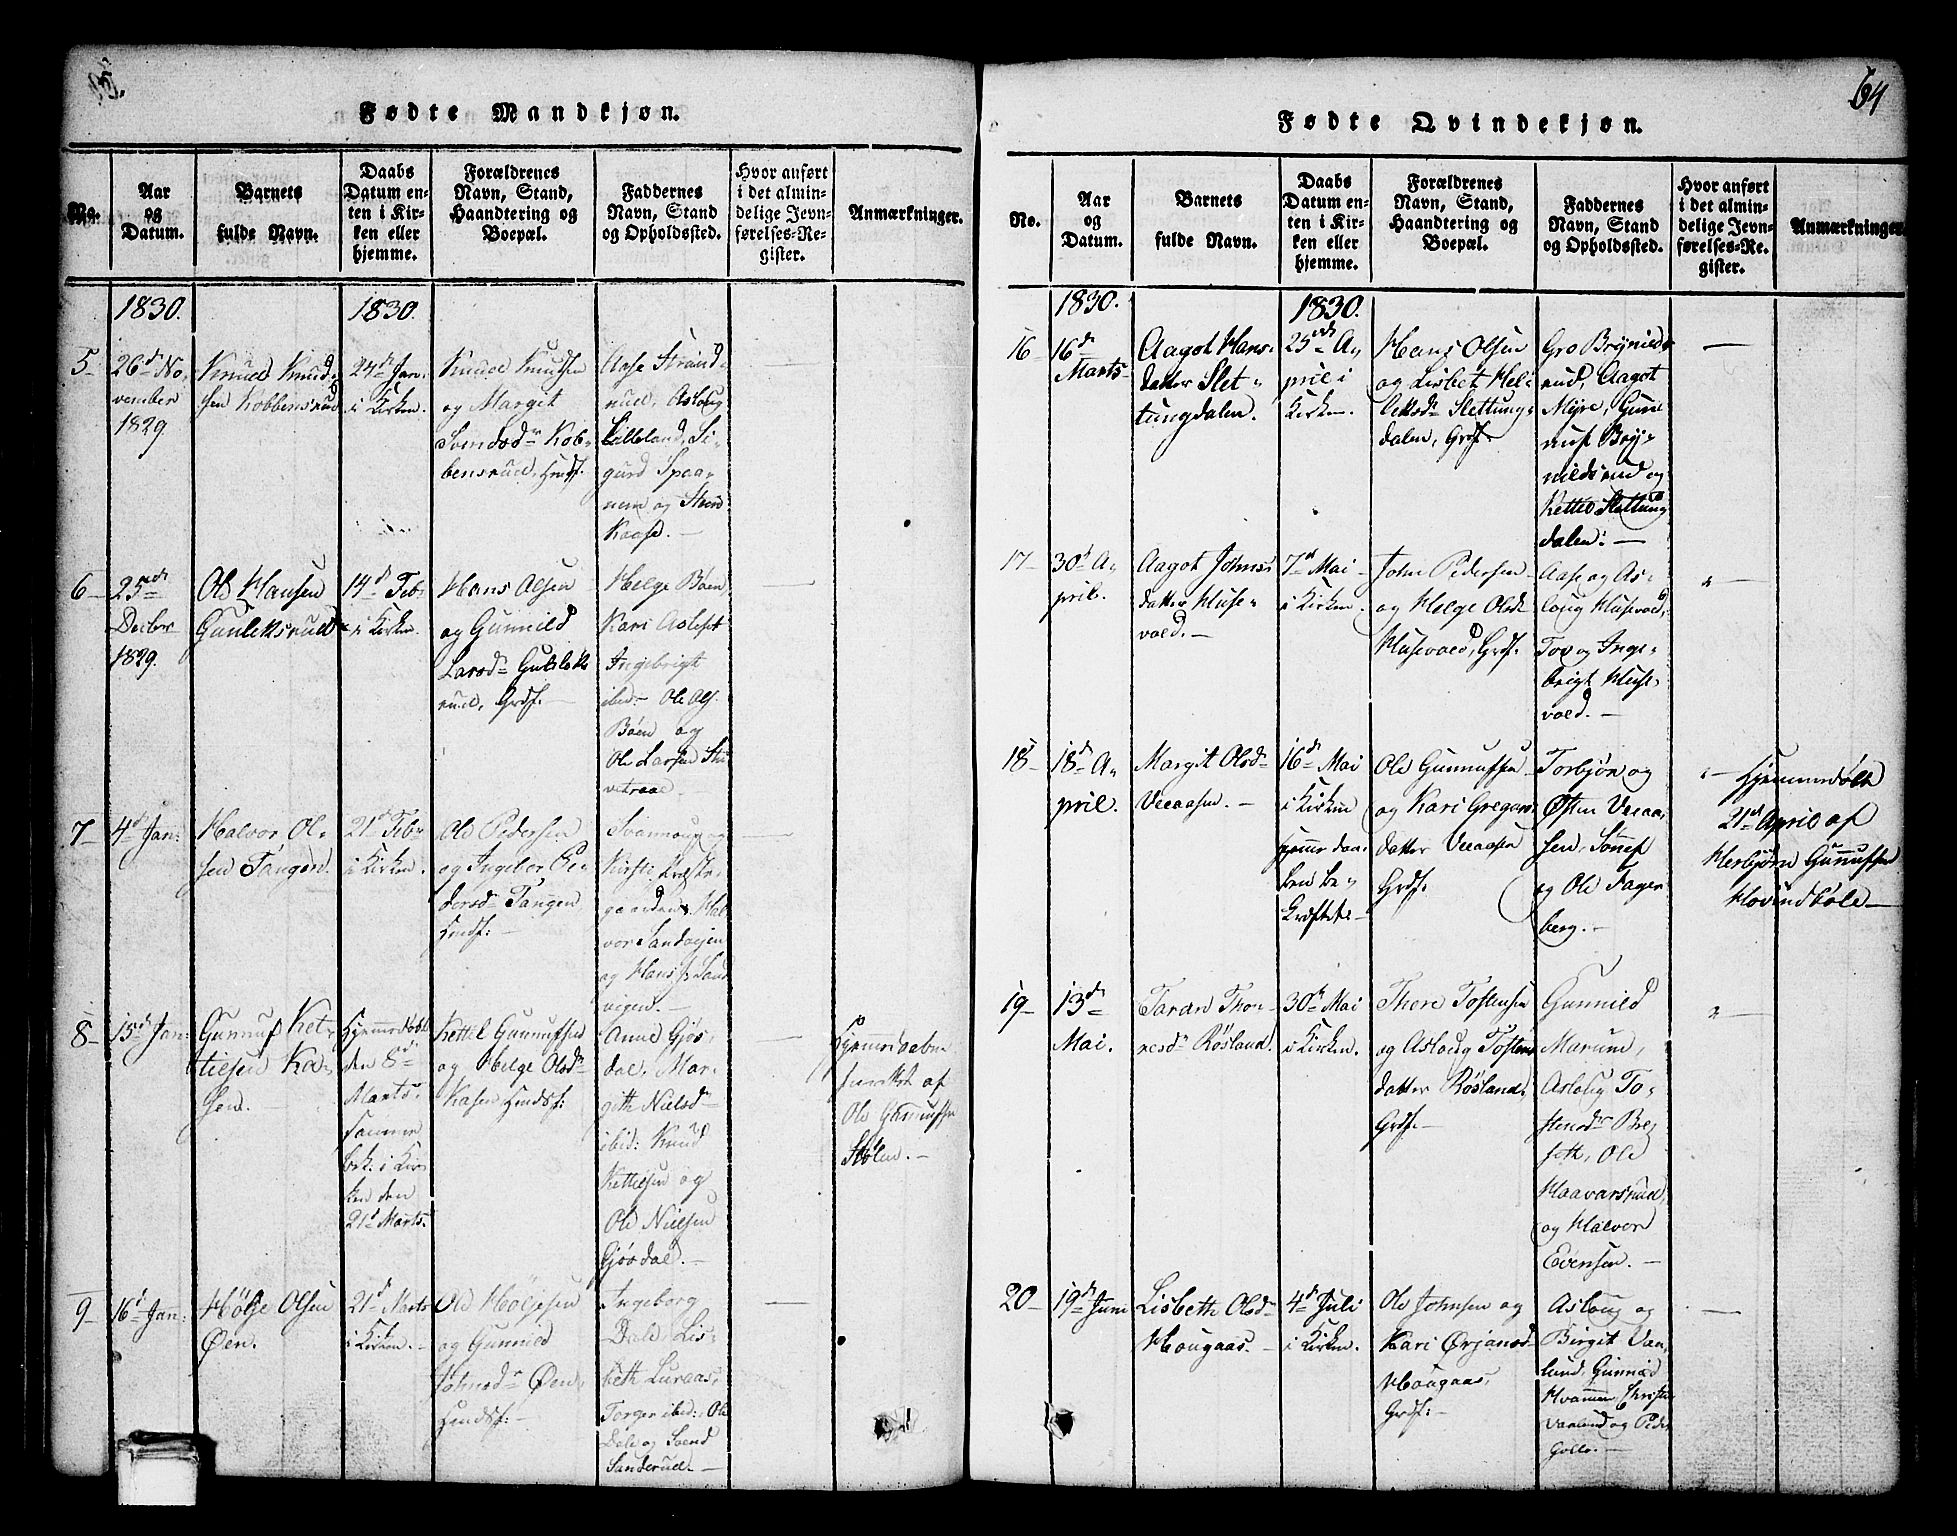 64
Fødte Mandkjøn.
No.
Aar
og
Datum.
Barnets
fulde Navn.
Daabs
Datum en-
ten i Kir-
ken eller
hjemme.
Forældrenes
Navn, Stand,
Haandtering og
Boepæl.
Faddernes
Navn, Stand
og Opholdssted.
Hvor anført
i det almin-
delige Jevn-
førelses-Re-
gister.
Anmærkninger.
1830.
1830.
5
26d No-
vember
1829.
Knud Knud-
sen Kobbensrud
24d Jan.
i Kirken.
Knud Knudsen
og Margit
Svendsdr Kob-
bensrud, Hindsf.
Aase Strand-
rud, Aslaug
Lilleland, Si-
gurd Spaa-
nem og Sten
Kaase.
6
25de
Decbr
1829.
Ole Hansen
Guuleksrud
14d Feb
i Kirken.
Hans Olsen
og Gunnild
Larsdr Guuleks
rud, Grdf.
Helge Bøen
Kari Aslest
Ingebrigt
ibid. Ole Ols.
Bøen og
Ole Larsen
7
4d Jan:
Halvor Ol-
sen Tangen.
21d Feb
i Kirken.
Ole Pedersen
og Ingebor Pe-
dersd Tangen
Hindsf:
Svannoug og
Kirsti Præste-
gaarden, Hal-
vor Sandvigen
og Hans f: Sand
vigen.
8
15d Jan:
Gunnuf Ket-
tilsen Ka-
sen.
Hjemmedøbt
den 8d
Marts.
Sammes
bek: i Kir-
ken den
21d Marts
Kettel Gunnufsen
og Helge Olsdr
Kasen Hindsf:
Anne Gjøs-
dal, Mar-
gith Nielsd
ibid: Knud
Kettilsen og
Ole Nielsen
Gjøsdal.
Hjemmedaaben
forrettet af
Ole Gunnufsen
Stølen.
9
16d Jan:
Høljе Olsen
Øen.
21d Marts
i Kirken.
Ole Høljesen
og Gunnild
Johnsdr Øen,
Hindsf:
Ingeborg
Dale, Lis-
beth Luraas,
Torger ibid:, Ole
Dale og Svend
Sanderud.
Fødte Qvindekjøn.
No.
Aar
og
Datum.
Barnets
fulde Navn.
Daabs
Datum en-
ten i Kir-
ken eller
hjemme.
Forældrenes
Navn, Stand,
Haandtering og
Boepæl.
Faddernes
Navn, Stand
og Opholdssted.
Hvor anført
i det almin-
delige Jevn-
førelses-Re-
gister.
Anmærkninger.
1830.
1830.
16
16d
Marts
Aagot Hans-
datter Slet-
tungdalen.
25de A-
pril i
Kirken.
Hans Olsen
og Lisbet Hel-
leksdr Slettung-
dalen, Grdf.
Gro Brynilds-
rud, Aagot
Mijre, Gun-
nuf Bryj-
nildsrud og
Kettel Slettung
dalen.
17
30d A-
pril.
Aagot Johns-
datter Huse-
vold.
7d Mai
i Kirken.
John Pedersen
og Helge Olsdr
Husevold, Grdf.
Aase og As-
loug Husevold,
Tov og Inge-
brigt Huse-
vold.
18
18d A-
pril.
Margit Olsd
Veeaasen.
16d Mai
i Kirken
hjemme daa-
ben be-
kræftet
Ole Gunnufsen
og Kari Gregars
datter Veeaasen
Grdf.
Torbjør og
Østen Veeaa-
sen, Tønef
og Ole Fager
berg.
Hjemmedøbt
21d April af
Herbjørn Gunnufsen
Hovindbøle
19
13d
Mai.
Taran Tho-
resdr Røsland.
30d Mai
i Kirken.
Thore Tostensen
og Asloug Tostens
datter Røsland,
Grdf.
Gunnild
Marum,
Asloug To-
stensdr Bre-
seth, Ole
Haavarsrud,
og Halvor
Evensen.
20
19d Juni
Lisbeth Olsd
Hougaas.
4d Juli
i Kirken.
Ole Johnsen og
Kari Ørjansd
Hougaas,
Grdf:
Asloug og
Birgit Vaa-
lund, Gunnild
Hvammen, Christen
Vaalund og Peder
Golle.